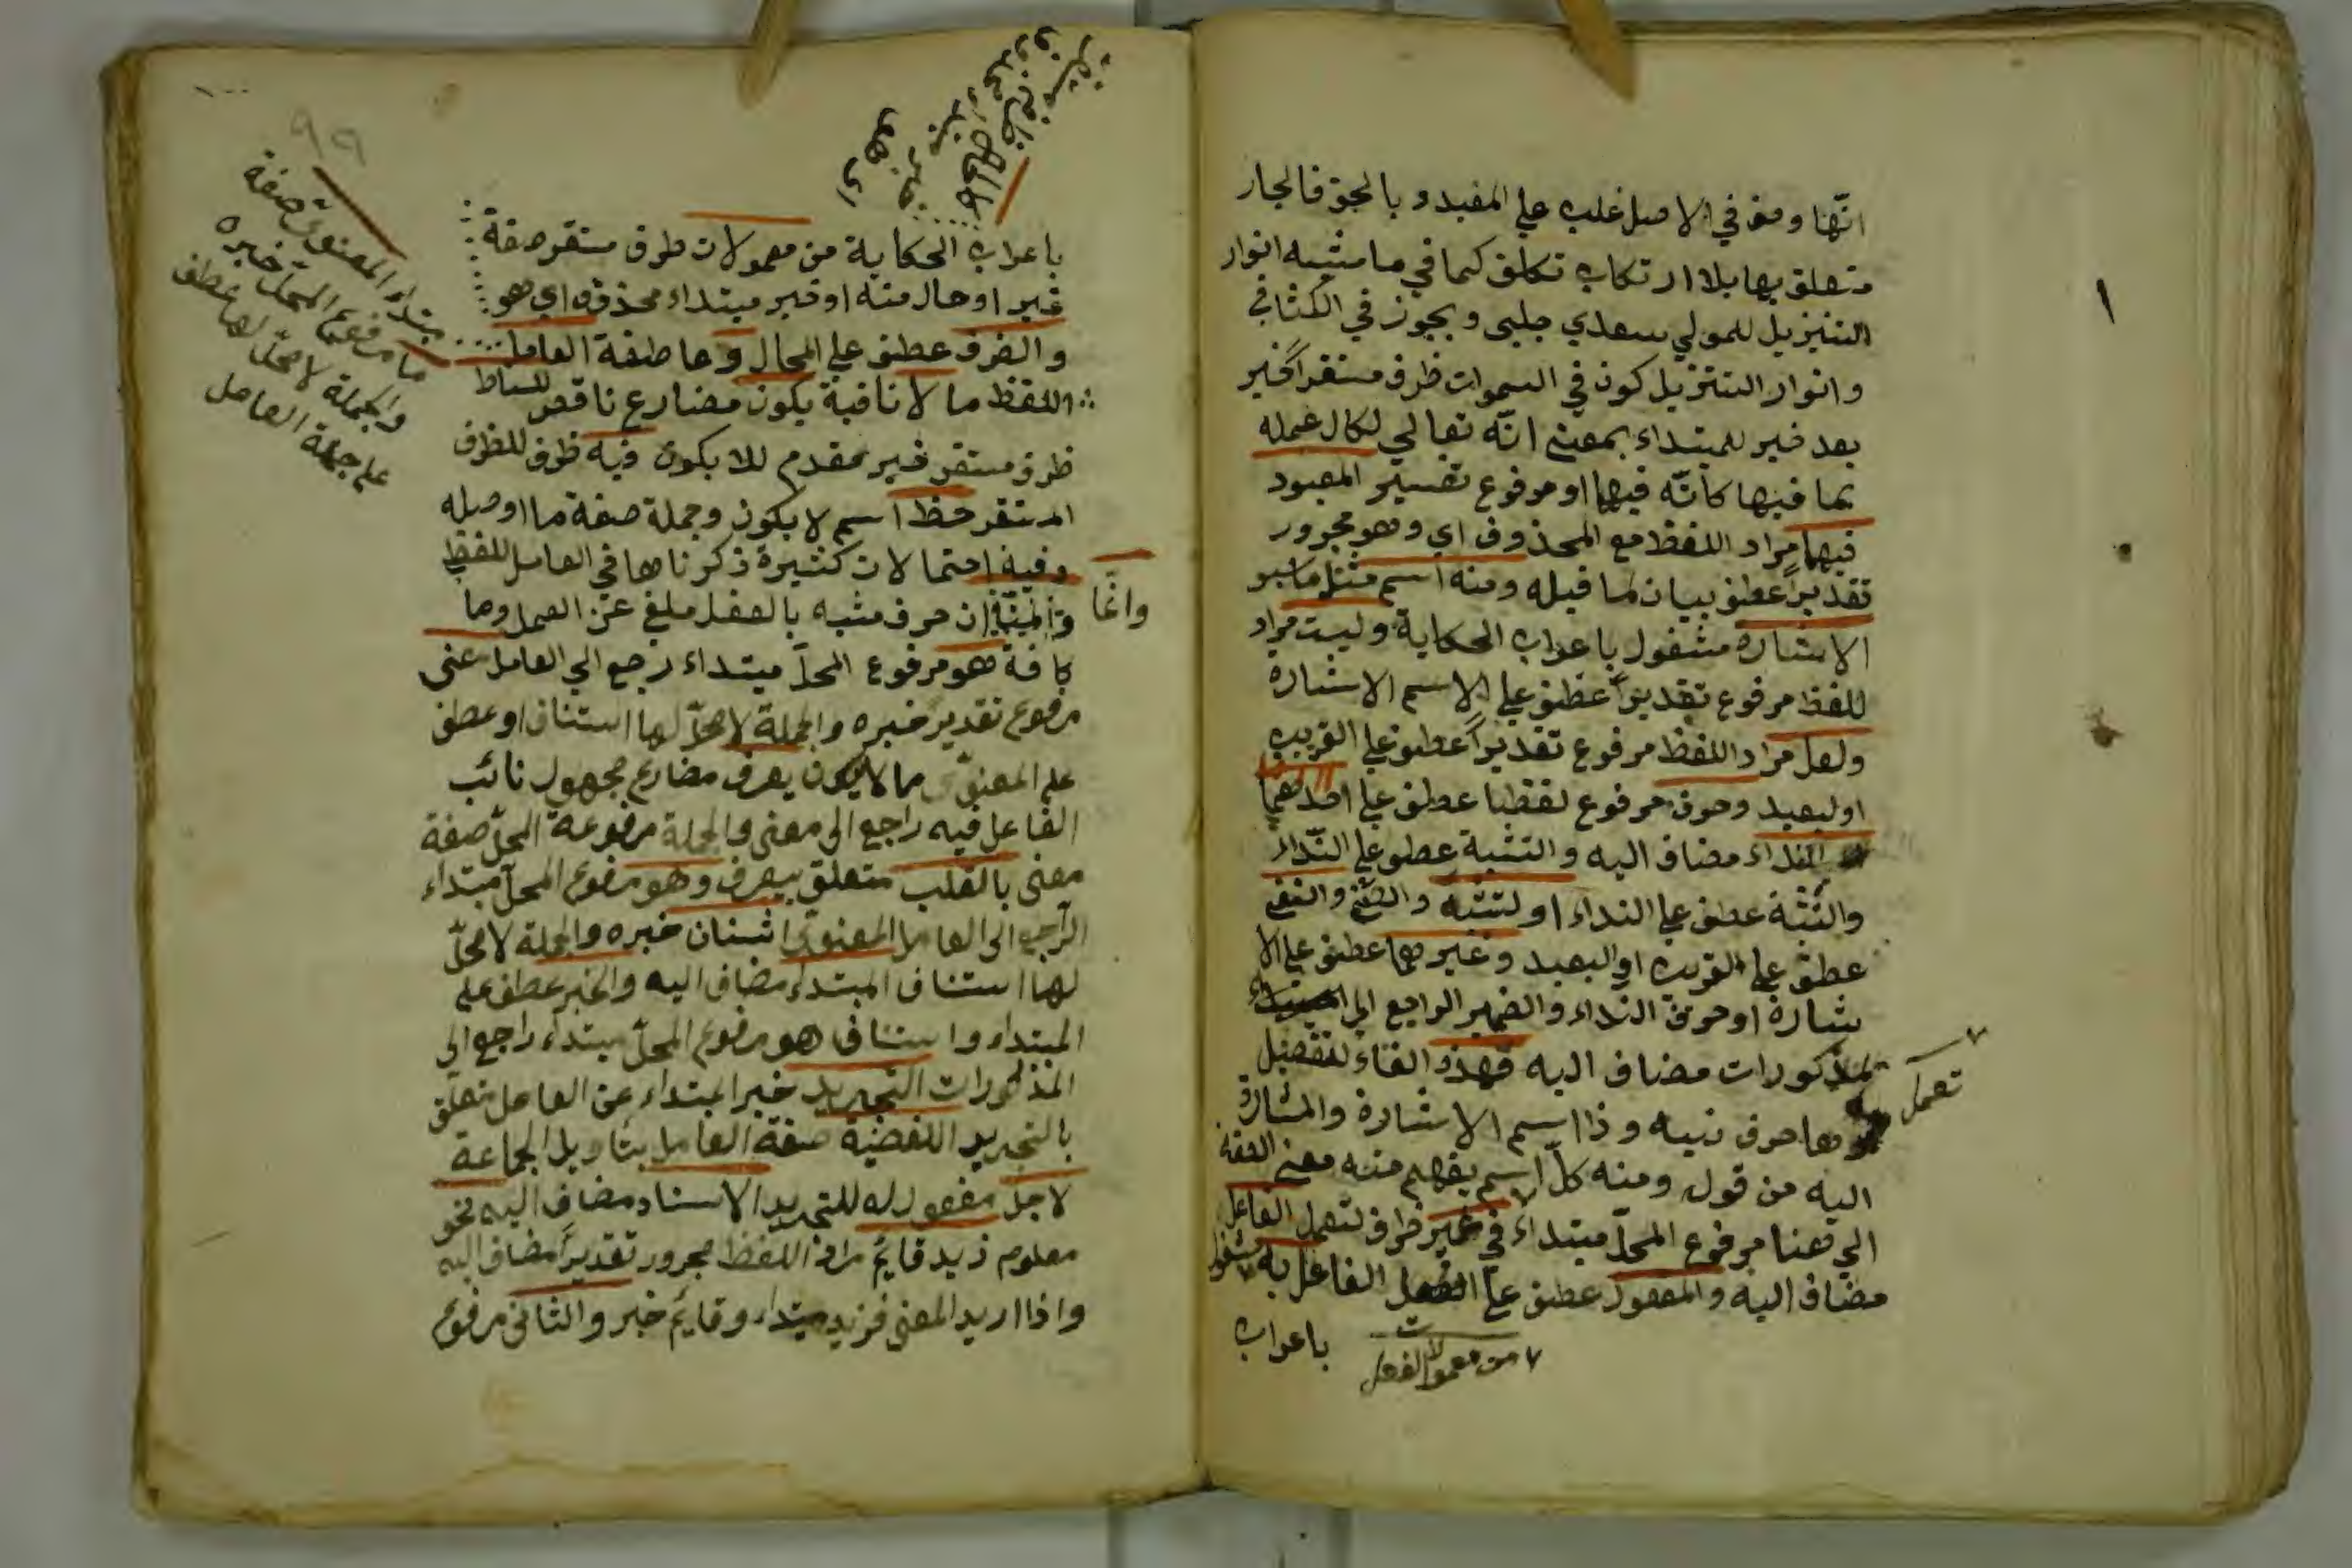 انّها وصف في الاصل غلب علي المقيد و بالحق فالجار
متعلق بها بلا ارتكاب تكلف كما في حاشيه انوار
التنزيل للمولي سعدي جلبي و يجوز في الكشاف
وانوار التنزيل كون في السموات ظرف مستقراً خبر
بعد خبر للمبتداء بمعني انّه تعالي لكمال علمه
بما فيها كانّه فيها او مرفوع تفسير المعبود
فيها مراد اللفظ مع المحذوف اي وهو مجرور
تقديراً عطف بيان لما قبله ومنه اسم مثل ما سبو
الاشاره مشغول باعراب الحكاية وليت مراد
للفظ مرفوع تقديراً عطف علي الاسم الاشاره
ولعل مراد اللفظ مرفوع تقديراً عطف علي القريب
او لبعيد وحرف مرفوع لفظا عطف علي احدهما
النداء مضاف اليه والتشبية عطف علي النّداء
والتّثبّة عطف علي النداء او لتنبّه والنفي
عطف علي القريب او البعيد وغيرهما عطف علي الا
شارة او حرف النداء والضمير الراجع الي
لمذكورات مضاف اليه فهذه الفاء لتفصيل
وها حرف تنبيه و ذا اسم الاشارة والمشارة
اليه من قول ومنه كلّ اسم يفهم منه معني الفعل
الي هنا مرفوع المحلّ مبتداء في غير ظرف لتعمل الفاعل
مضاف اليه والمفعول عطف علي الفاعل به مشغول
تعمل
٧ من معمولات الفعل
باعراب
باعراب الحكاية من معمولات ظرف مستقر صفة
غير او حال منه او خبر مبتداء محذوف اي هو
والظرف عطف علي الحال و عاطفة العامل
اللفظ ما لا نافية يكون مضارع ناقص للساط
ظرف مستقر خبر مقدم للا يكون فيه ظرف للظرف
المستقر حظ اسم لا يكون وجملة صفة ما او صله
وفيه احتمالات كثيرة ذكرناها في العامل للفظ
وانّما
ان حرف مشبه بالفعل ملغي عن العمل وما
كافة هو مرفوع المحلّ مبتداء رجع الي العامل معني
مرفوع تقدير خبره والجملة لا محلّ لها استناف او عطف
علي المعنويّ مما لا يكون يعرف مضارع مجهول نائب
الفاعل فيه راجع الي معني والجملة مرفوعة المحلّ صفة
معني بالقلب متعلق بيعرف وهو مرفوع المحلّ مبتداء
الرّاجع الي العامل المعنويّ اثنان خبره والجملة لا محلّ
لها استناف المبتداء مضاف اليه والخبر عطف علي
المبتداء واستناف هو مرفوع المحلّ مبتداء راجع الي
المذكورات التجريد خبر المبتداء عن العامل متعلّق
بالتجريد اللفظية صفة العامل بتاويل الجماعة
لاجل مفعول له للتجريد الاسناد مضاف اليه نحو
معلوم زيد قايم مراد اللفظ مجرور تقديراً مضاف اليه
واذا اريد المعني فزيد مبتداء وقايم خبر والثاني مرفوع
٩٩
مبتداء المعنويّ صفة
ما مرفوع المحلّ خبره
والجملة لا محلّ لها عطف
علي جملة العامل